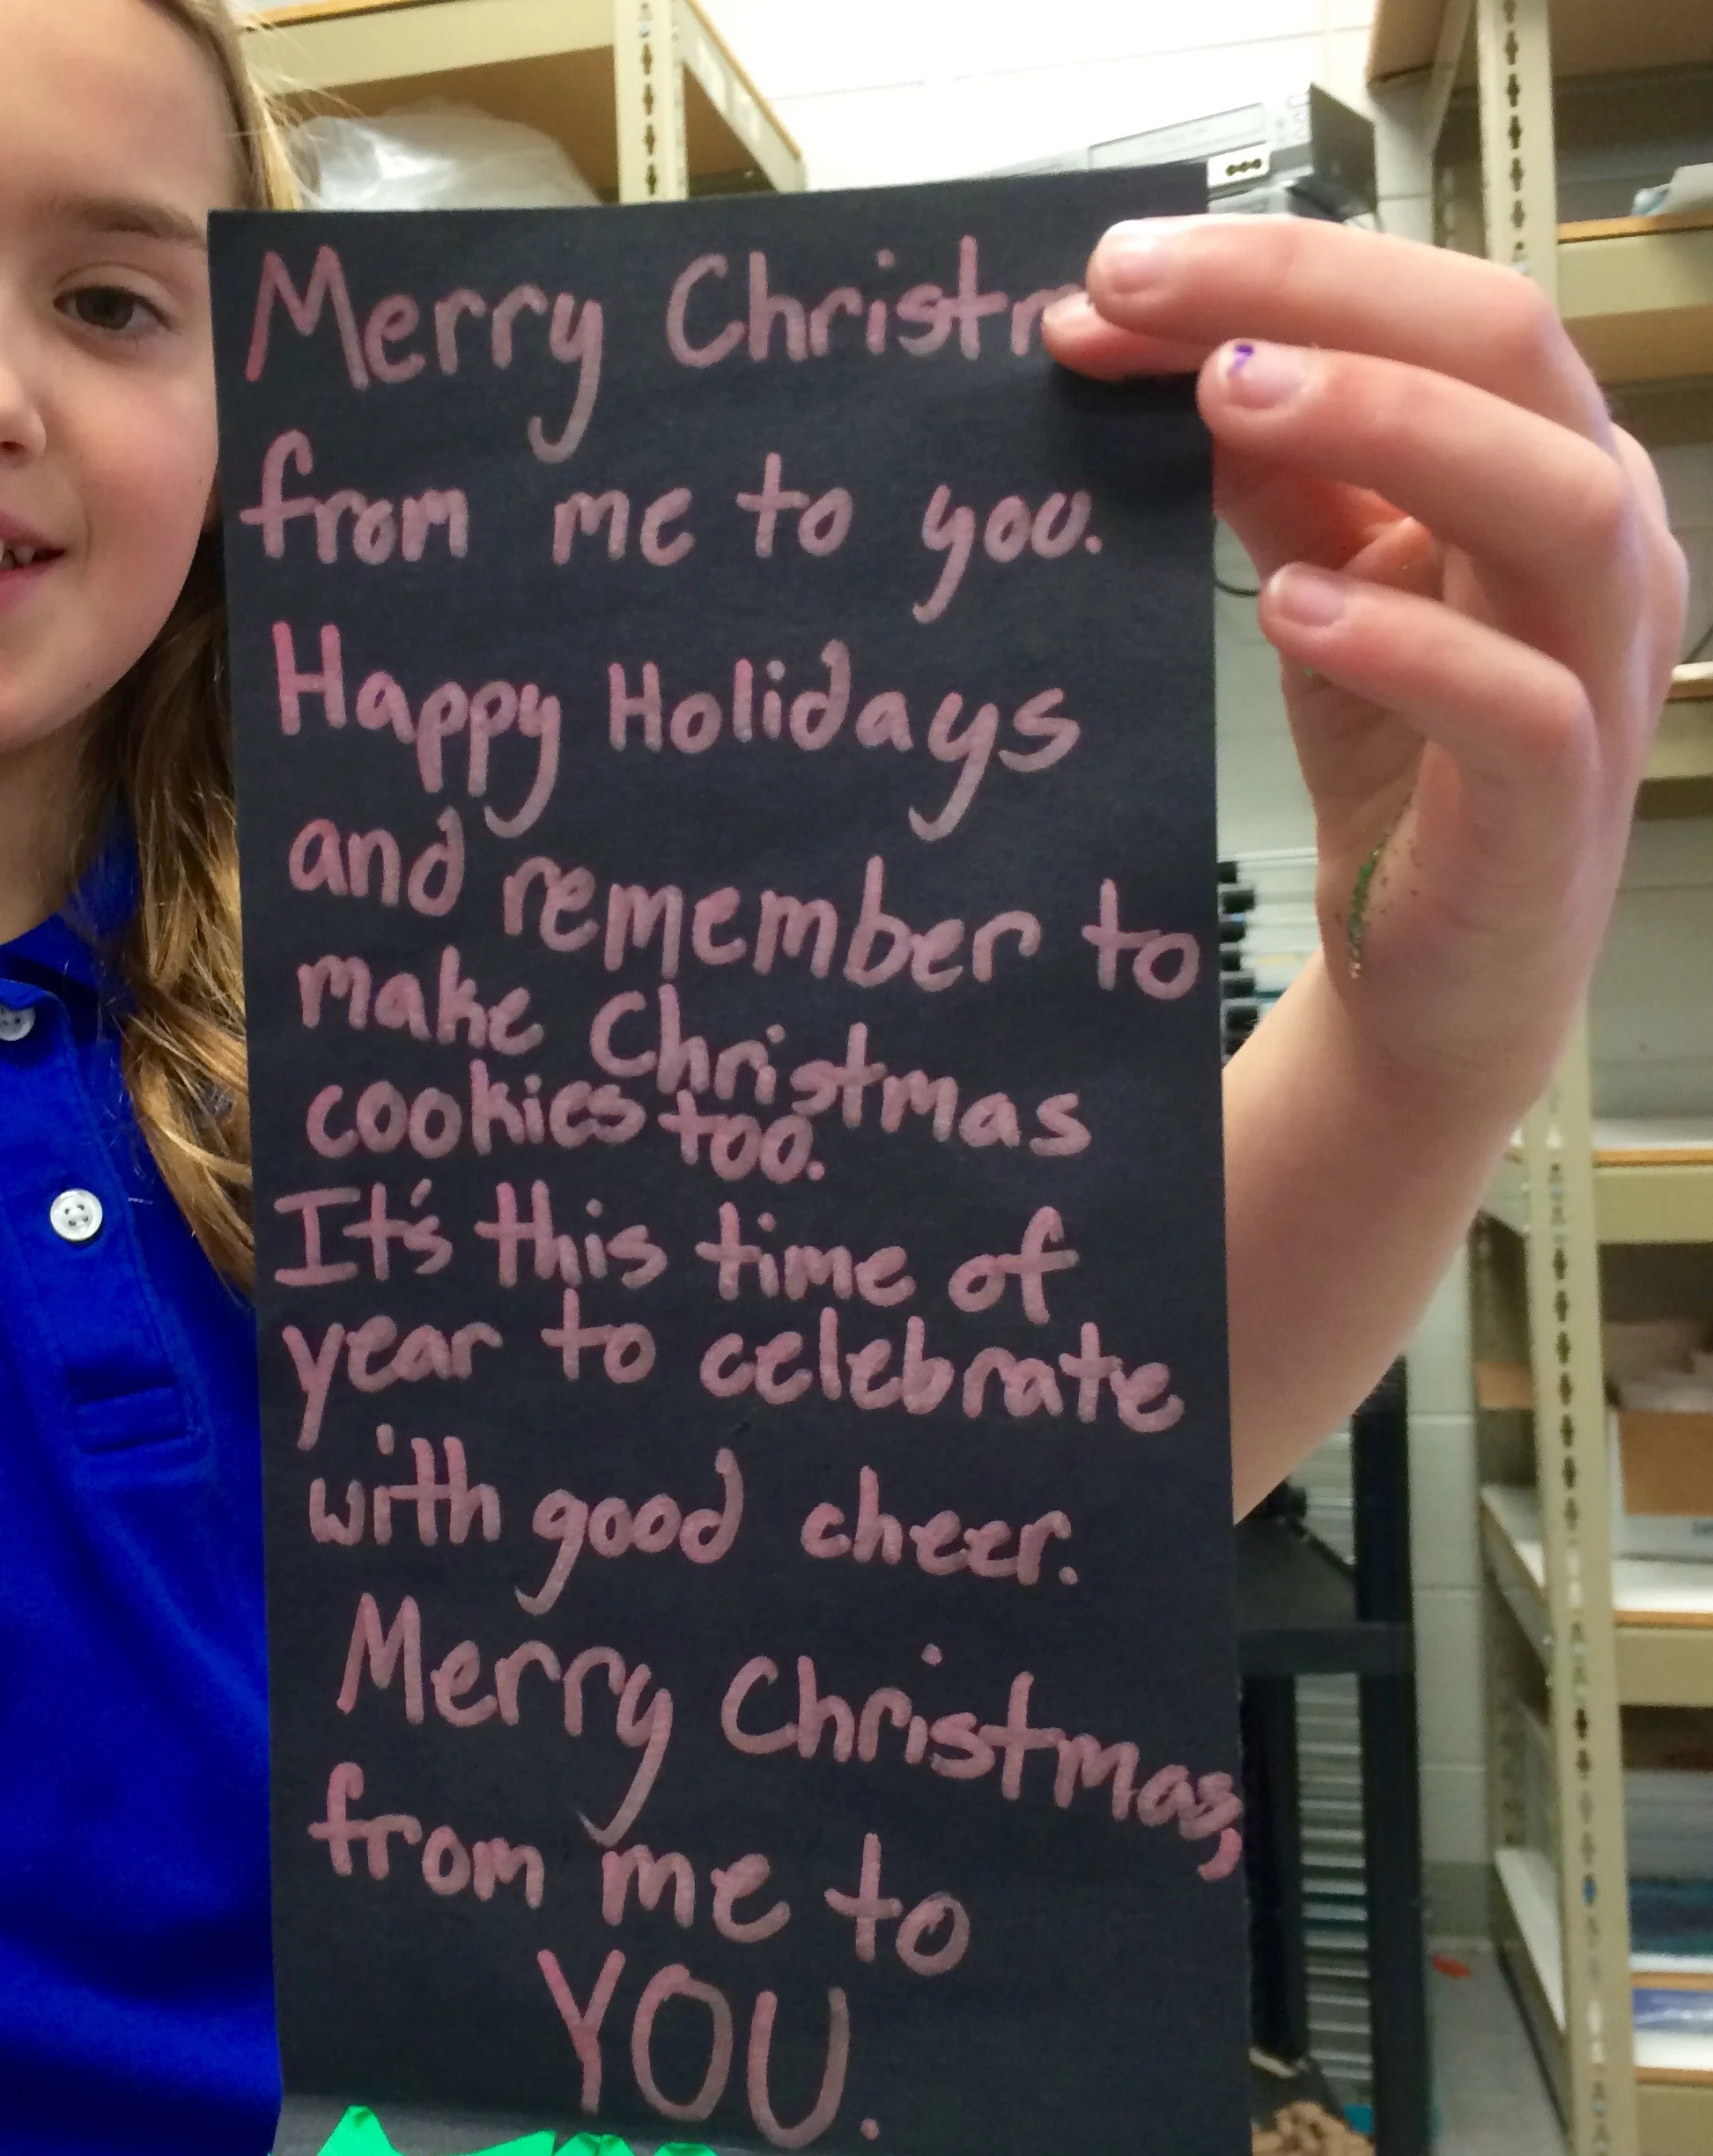 Merry Christm
from me to you.
Happy Holidays
and remember to
make Christmas
cookies too.
It's this time of
year to celebrate
with good cheer.
Merry Christmas,
from me to
YOU.